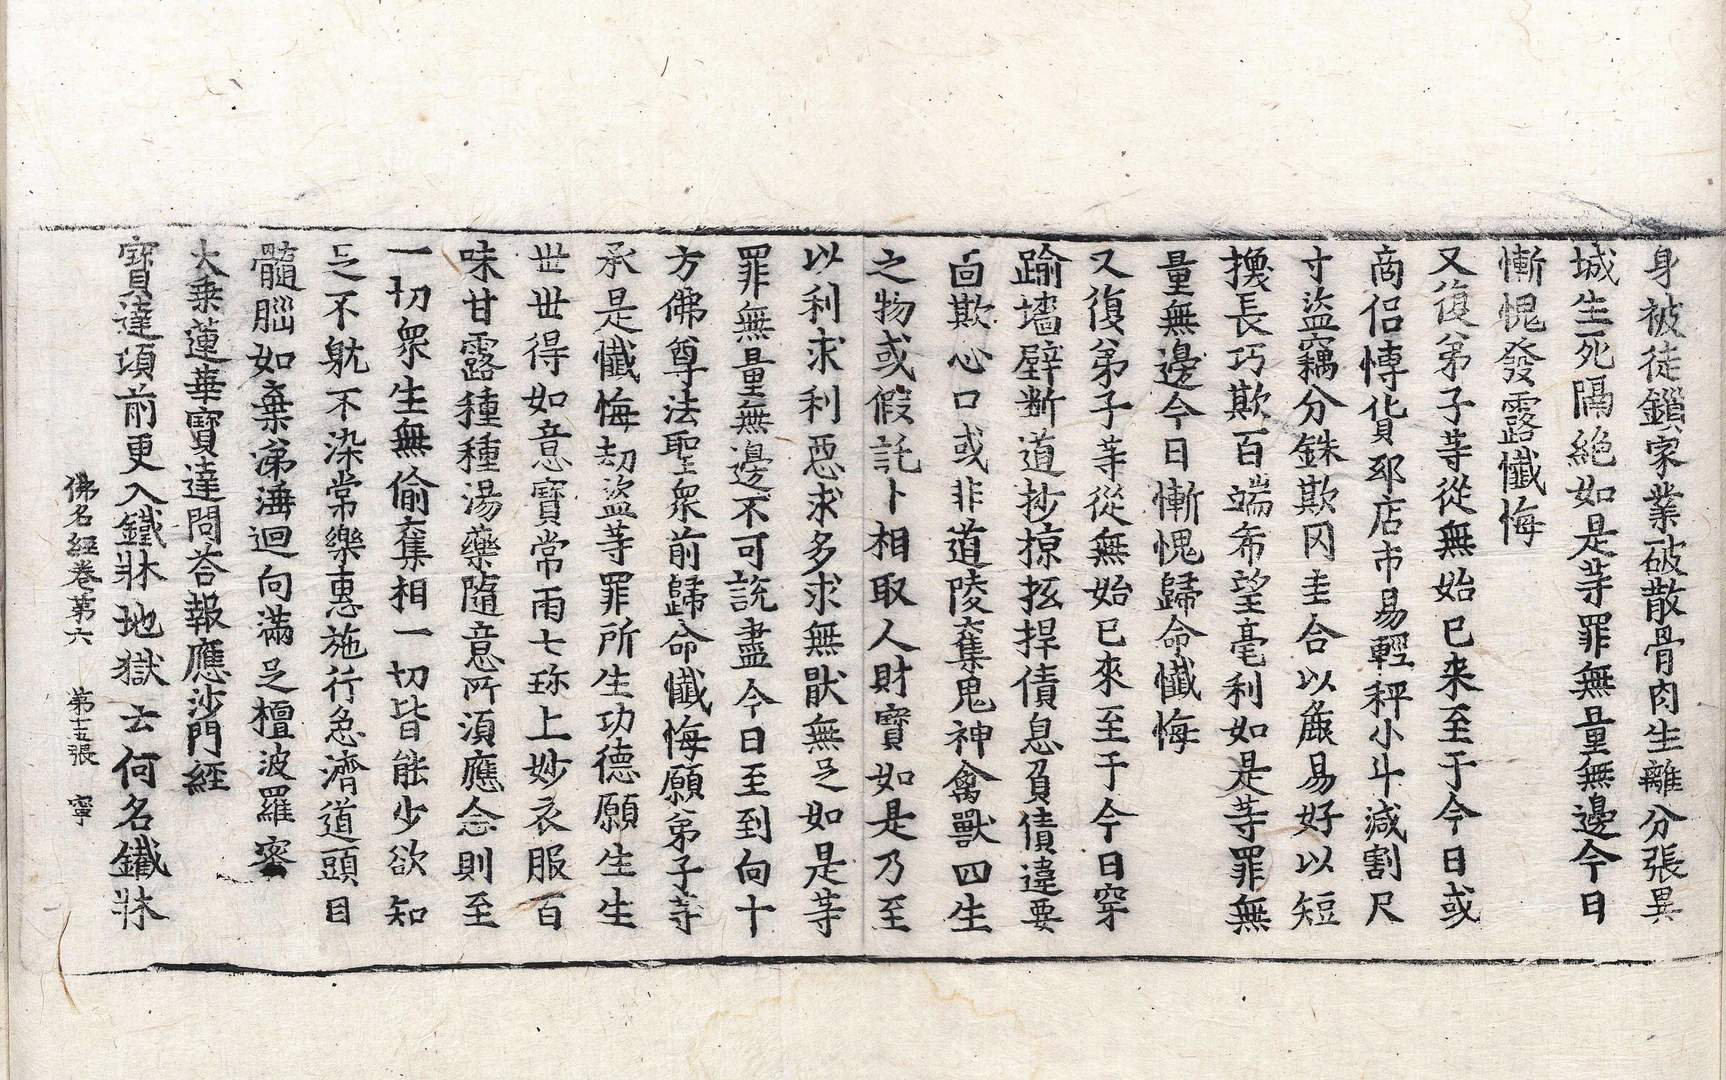 身被徒鎖家業破散骨肉生離分張異
城生死隔絶如是等罪無量無邊今日
慚愧發露懺悔
又復弟子等從無始已来至于今日或
商侶博貨邸店市易輕秤小斗減割尺
寸盜竊分銖欺罔圭合以麁易好以短
換長巧欺百端希望毫利如是等罪無
量無邊今日慚愧歸命懺悔
又復弟子等從無始已來至于今日穿
踰墻壁断道抄掠抂捍債息負債違要
面欺心口或非道陵奪鬼神禽獸四生
之物或假託卜相取人財寶如是乃至
以利求利惡求多求無猒無足如是等
罪無量無邊不可說盡今日至到向十
方佛尊法聖衆前歸命懺悔願弟子等
承是懺悔劫盜等罪所生功德願生生
世世得如意寶常雨七珎上妙衣服百
味甘露種種湯藥隨意所須應念則至
一切衆生無偷奪相一切皆能少欲知
足不躭不染常樂惠施行急濟道頭目
髓腦如棄涕涶迴向滿足檀波羅蜜
大乗蓮華寶達問荅報應沙門經
寶達頃前更入鐵牀地獄云何名鐵牀
佛名經卷第六 第十五張 寧